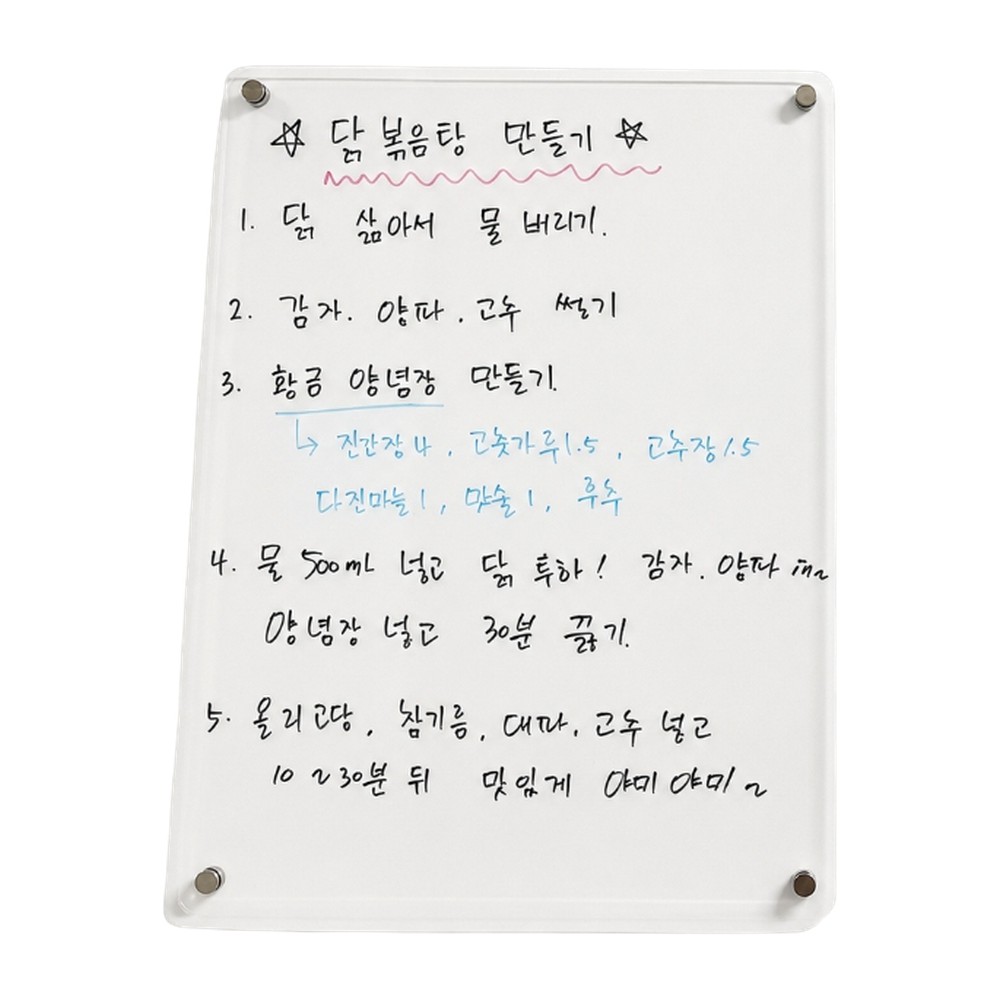 ☆ 닭볶음탕 만들기 ☆
1. 닭 삶아서 물 버리기.
2. 감자. 양파. 고추 썰기
3. 황금 양념장 만들기.
↳ 진간장4, 고춧가루1.5, 고추장1.5
다진마늘1, 맛술1, 후추
4. 물 500ml 넣고 닭 투하! 감자. 양파 in~
양념장 넣고 30분 끓기.
5. 올리고당, 참기름, 대파, 고추 넣고
10~30분 뒤 맛있게 야미야미~